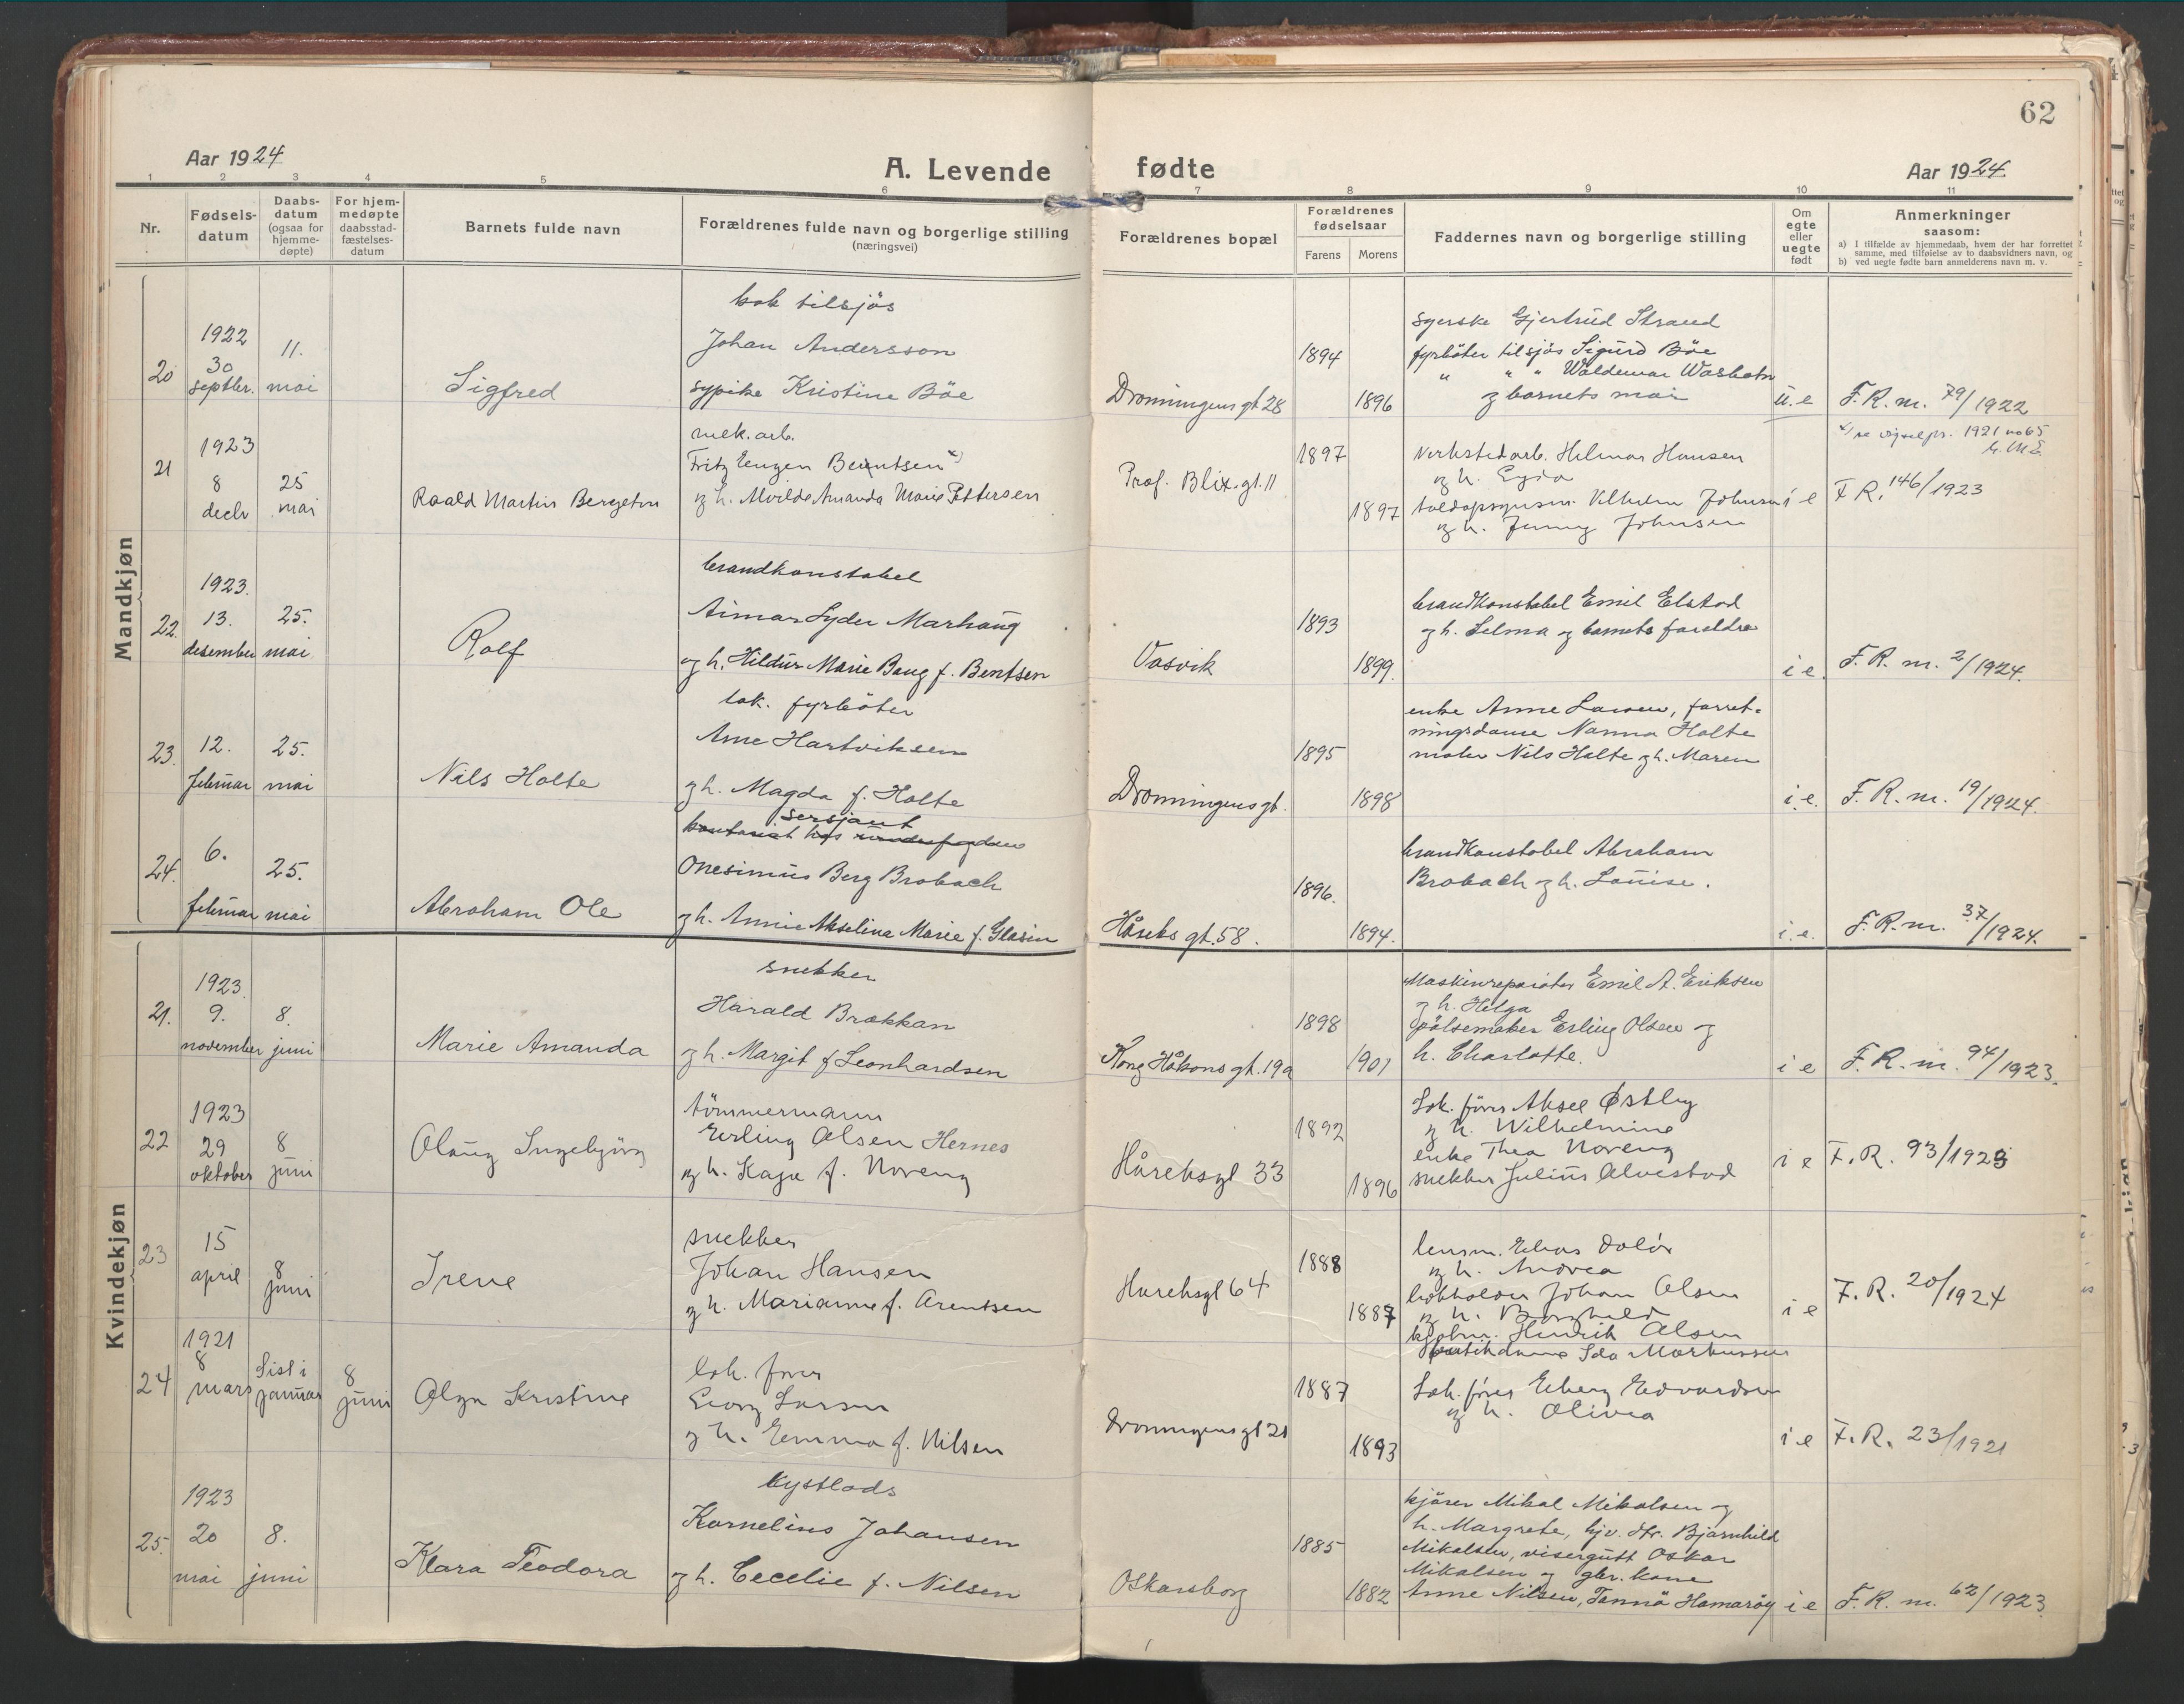 62
Aar 1924
A. Levende fødte
Aar 1924.
1 2 3 4 5 6 7 8 9 10 11
Nr.
Fødsels-
datum
Daabs-
datum
(ogsaa for
hjemme-
døpte)
For hjem-
medøpte
daabsstad-
fæstelses-
datum
Barnets fulde navn
Forældrenes fulde navn og borgerlige stilling
(næringsvei)
Forældrenes bopæl
Forældrenes
fødselsaar
Farens Morens
Faddernes navn og borgerlige stilling
Om
egte
eller
uegte
født
Anmerkninger
saasom:
a) I tilfælde av hjemmedaab, hvem der har forrettet
samme, med tilføielse av to daabsvidners navn, og
b) ved uegte fødte barn anmelderens navn m. v.
Mandkjøn
20
1922
30
septbr.
11.
mai
Sigfred
kok tilsjös
Johan Andersson
sypike Kristine Böe
Dronningens gt 28
1894
1896
syerske Gjertrud Strand
fyrböter tilsjös Sigurd Böe
" " " Waldemar
og barnets mor
u. e
F. R. m. 79/1922
21
1923
8
decbr
25
mai
Roald Martin Bergeton
mek. arb.
Fritz Eugen Berntsen x)
og h. Alvilde Amanda Marie Pettersen
Prof. Blix. gt. 11
1897
1897
Verkstedarb. Helmar Hansen
og h.
Vilhelm Johnsen
og h. Jenny Johnsen
i e
x) se vigselpr. 1921 no 65
F R. 146/1923
22.
1923.
13.
desember
25.
mai
Rolf
brandkonstabel
Aimar Lyder Marhaug
og h. Hildur Marie Baug f. Bentsen
Vasvik
1893
1899.
brandkonstabel Emil Elstad
og h. Selma og barnets foreldre
i e.
F. R. m. 2/1924.
23.
12.
februar
25.
mai
Nils Holte
lok. fyrböter
Arne Hartviksen
og h. Magda f. Holte
Dronningens gt.
1895
1898
enke Anne Larsen, forret-
ningsdame Nanna Holte
maler Nils Holte og h. Maren
i. e.
F. R. m. 19/1924.
24.
6.
februar
25.
mai
Abraham Ole
sersjant
kontorist hos
Onesimus Berg Brobach
og h. Annie Akselina Marie f. Glasin
Håreks gt. 58.
1896.
1894.
brandkonstabel Abraham
Brobach og h. Louise.
i. e.
F. R. m. 37/1924.
Kvindekjøn
21.
1923
9.
november
8.
juni
Marie Amanda
snekker
Harald Brækkan
og h. Margit f Leonhardsen
Kong Håkons gt. 19a
1898
1901
Maskinreparatör Emil A. Eriksen
og h. Helga
pölsemaker Erling Olsen og
h. Charlotte.
i e
F. R. m. 94/1923.
22
1923
29
oktober
8
juni
Olaug Ingebjörg
tömmermann
Erling Olsen Hernes
og h. Kaja f. Noreng
Håreksgt 33
1892
1896
Lok. förer Aksel Østby
og h. Wilhelmine
enke Thea Noreng
snekker Julius Alvestad
i e
F. R. 93/1923
23
15
april
8
juni
Irene
snekker
Johan Hansen
og h. Marianne f. Arentsen
Hareksgt 64
1888
1887
lensm. Elias
og h. Andrea
Johan Olsen
og h. Borghild
Henrik Olsen
butikdame Ida Markussen
i e
F. R. 20/1924
24
1921
8
mars
Sist i
januar
8
juni
Olga Kristine
lok. förer
Georg Larsen
og h. Emma f. Nilsen
Dronningens gt 21
1887
1893
Lok. förer Edvardsen
og h. Olivia
i e
F. R. 23/1921
25.
1923
20
mai
8.
juni
Klara Teodora
kystlods
Kornelius Johansen
og h. Cecelie f. Nilsen
Oskarsborg
1885
1882
kjörer Mikal Mikalsen og
h. Margrete, hjv. dtr. Bjarnhild
Mikalsen, visergutt Oskar
Mikalsen og gbr. kone
Anne Nilsen, Tannö Hamaröy
i e
F. R. m. 62/1923